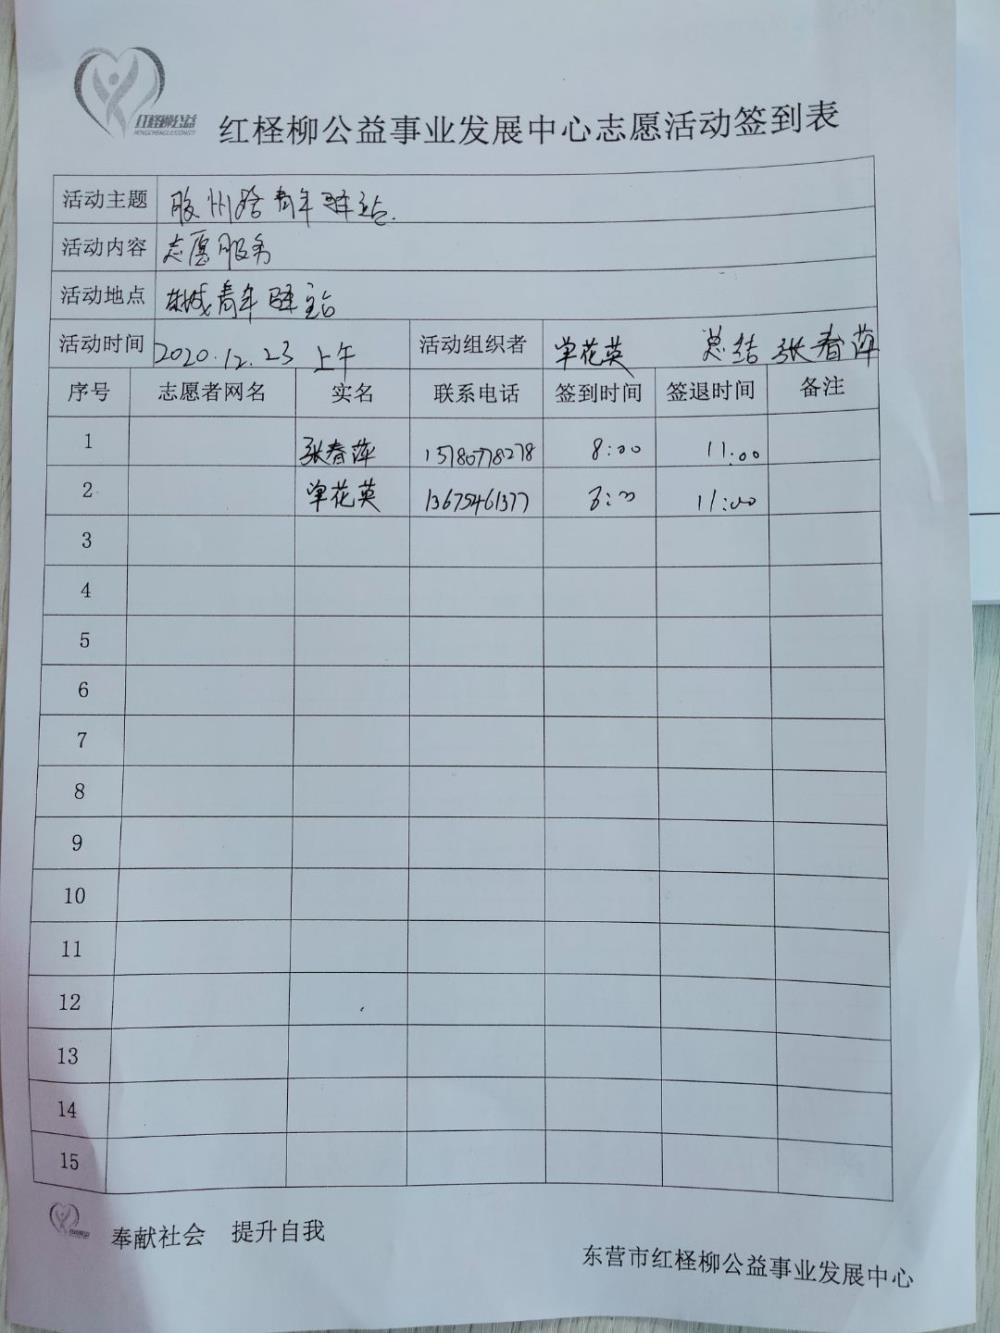 红柽柳公益
红柽柳公益事业发展中心志愿活动签到表
活动主题 胶州路青年驿站.
活动内容 志愿服务
活动地点 东城青年驿站
活动时间 2020.12.23 上午 活动组织者 单花英 总结 张春萍
序号 志愿者网名 实名 联系电话 签到时间 签退时间 备注
1 张春萍 8:00 11:00
2 单花英 13675461377 8:00 11:00
3
4
5
6
7
8
9
10
11
12
13
14
15
奉献社会 提升自我
东营市红柽柳公益事业发展中心